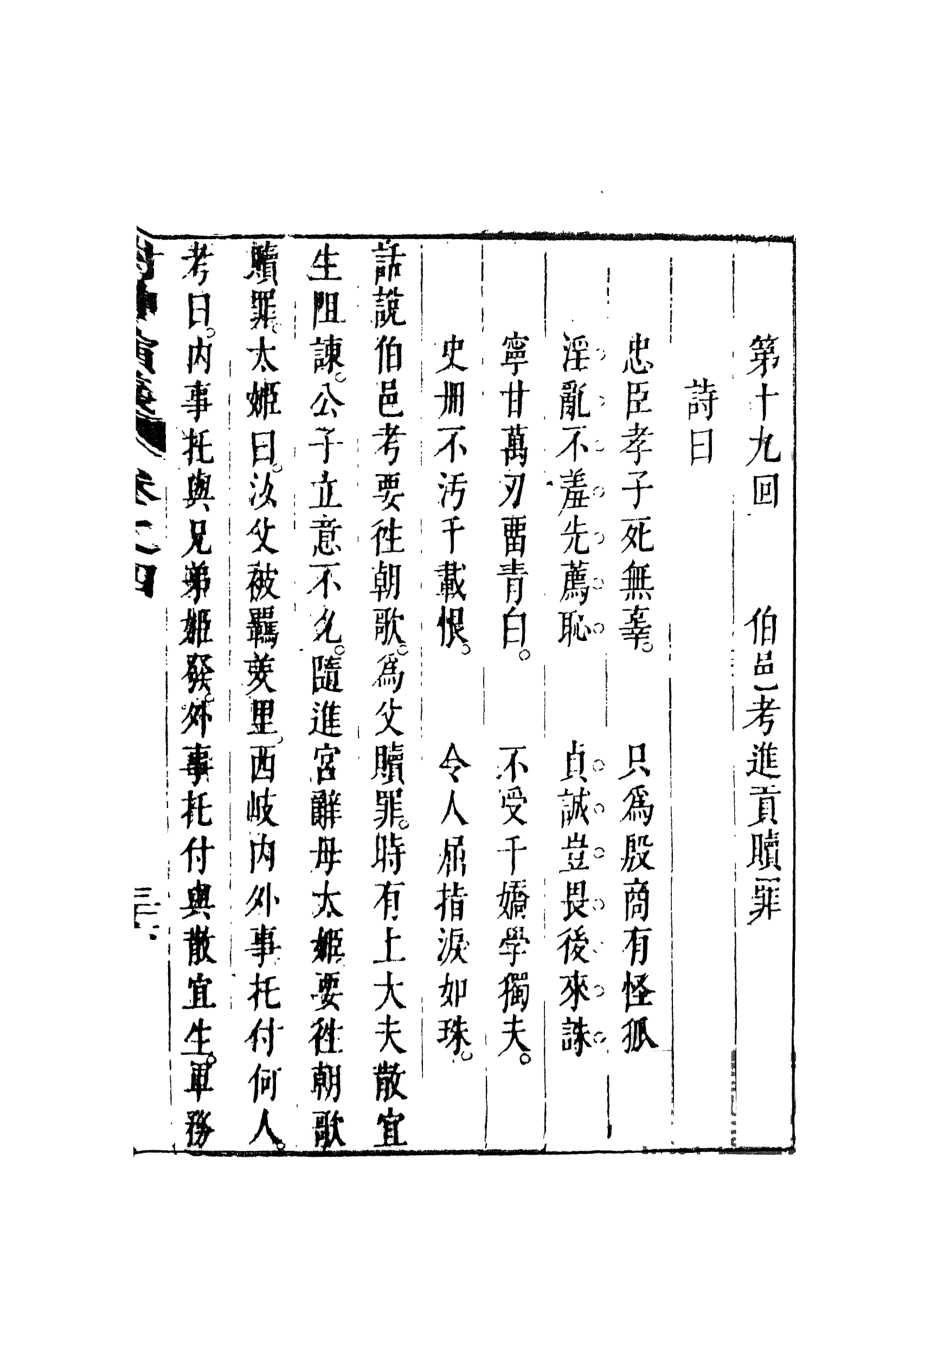 第十九回　伯邑考進貢贖罪
詩曰
忠臣孝子死無辜。　只爲殷商有怪狐
淫亂不羞先薦恥　貞誠豈畏後來誅
寧甘萬刃畱青白。　不受千嬌學獨夫。
史冊不汚千載恨。　令人屈指淚如珠。
話說伯邑考要徃朝歌。爲父贖罪。時有上大夫散宜
生阻諫。公子立意不允。隨進宮辭母太姬。要徃朝歌
贖罪。太姬曰。汝父被羈羑里。西岐内外事托付何人。
考曰。内事托與兄弟姬發。外事托付與散宜生。軍務
封神演義　卷之四　三十六